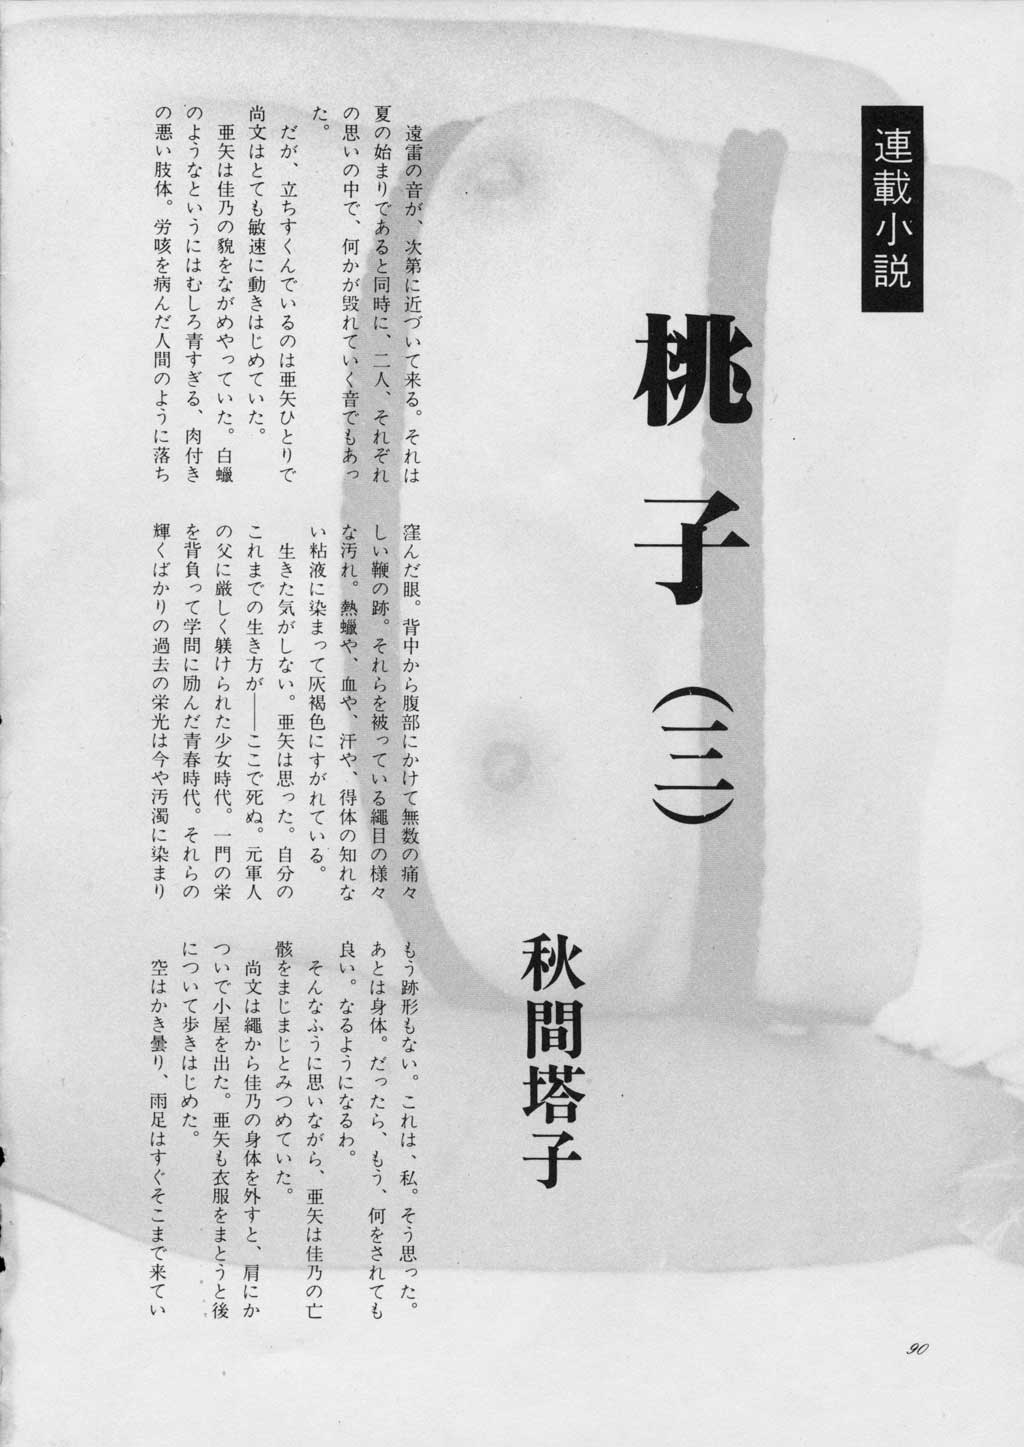 連載小説
桃子（三）
秋間塔子
遠雷の音が、次第に近づいて来る。それは
夏の始まりであると同時に、二人、それぞれ
の思いの中で、何かが毀れていく音でもあっ
た。
だが、立ちすくんでいるのは亜矢ひとりで
尚文はとても敏速に動きはじめていた。
亜矢は佳乃の貌をながめやっていた。白蠟
のようなというにはむしろ青すぎる、肉付き
の悪い肢体。労咳を病んだ人間のように落ち
窪んだ眼。背中から腹部にかけて無数の痛々
しい鞭の跡。それらを被っている縄目の様々
な汚れ。熱蠟や、血や、汗や、得体の知れな
い粘液に染まって灰褐色にすがれている。
生きた気がしない。亜矢は思った。自分の
これまでの生き方が――ここで死ぬ。元軍人
の父に厳しく躾けられた少女時代。一門の栄
を背負って学問に励んだ青春時代。それらの
輝くばかりの過去の栄光は今や汚濁に染まり
もう跡形もない。これは、私。そう思った。
あとは身体。だったら、もう、何をされても
良い。なるようになるわ。
そんなふうに思いながら、亜矢は佳乃の亡
骸をまじまじとみつめていた。
尚文は縄から佳乃の身体を外すと、肩にか
ついで小屋を出た。亜矢も衣服をまとうと後
について歩きはじめた。
空はかき曇り、雨足はすぐそこまで来てい
90